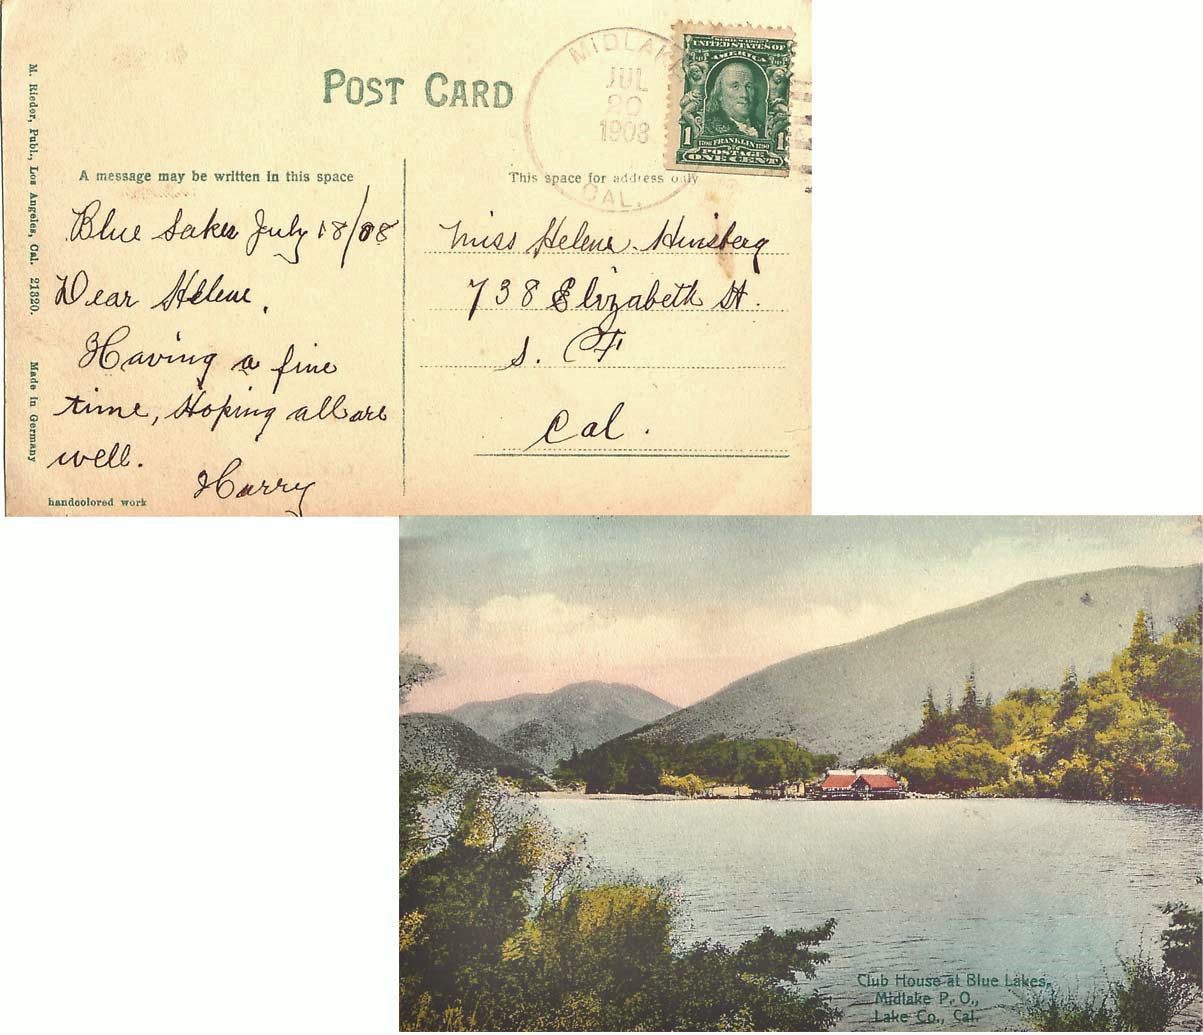 POST CARD
MIDLAKE
JUL
20
1908
CAL.
SERIES 1902
UNITED STATES OF
AMERICA
1 1
1706 FRANKLIN 1790
POSTAGE
ONE CENT
A message may be written in this space
This space for address only
Blue Lakes July 18/08
Dear Helene,
Having a fine
time, Hoping all are
well.
Harry
Miss Helene Hinsberg
738 Elizabeth St.
S. F
Cal.
M. Rieder, Publ., Los Angeles, Cal. 21320. Made in Germany
handcolored work
Club House at Blue Lakes,
Midlake P. O.,
Lake Co., Cal.